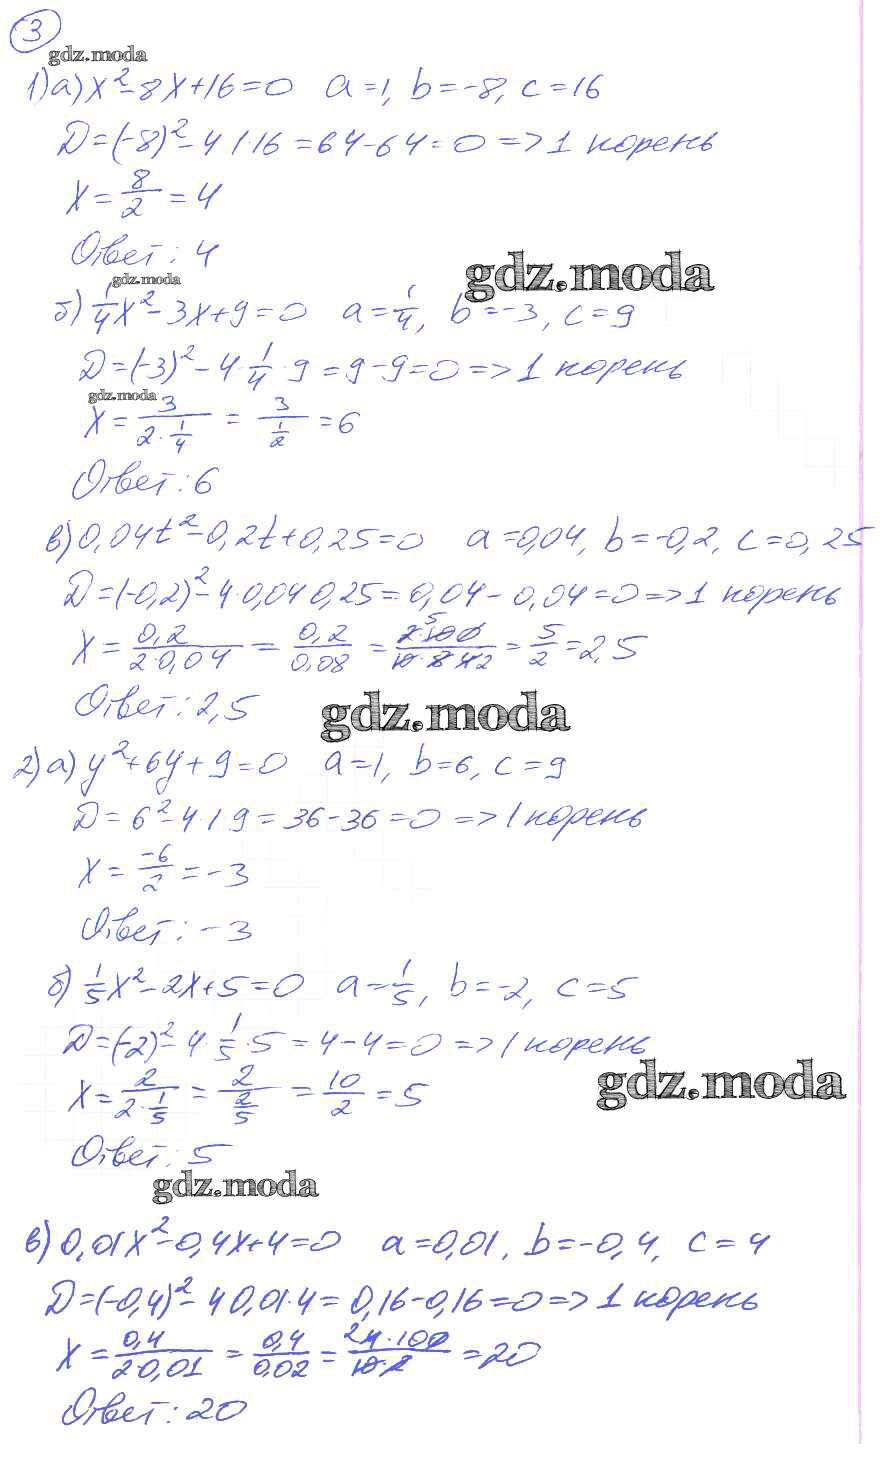 3
gdz.moda
1) а) x² - 8x + 16 = 0   a = 1, b = -8, c = 16
D = (-8)² - 4 · 1 · 16 = 64 - 64 = 0 => 1 корень
x = 8/2 = 4
Ответ: 4
gdz.moda
gdz.moda
б) 1/4 x² - 3x + 9 = 0   a = 1/4, b = -3, c = 9
D = (-3)² - 4 · 1/4 · 9 = 9 - 9 = 0 => 1 корень
gdz.moda
x = 3/(2 · 1/4) = 3/(1/2) = 6
Ответ: 6
в) 0,04t² - 0,2t + 0,25 = 0   a = 0,04, b = -0,2, c = 0,25
D = (-0,2)² - 4 · 0,04 · 0,25 = 0,04 - 0,04 = 0 => 1 корень
x = 0,2/(2 · 0,04) = 0,2/0,08 = 2 · 100/(10 · 8) = 5/2 = 2,5
Ответ: 2,5
gdz.moda
2) а) y² + 6y + 9 = 0   a = 1, b = 6, c = 9
D = 6² - 4 · 1 · 9 = 36 - 36 = 0 => 1 корень
x = -6/2 = -3
Ответ: -3
б) 1/5 x² - 2x + 5 = 0   a = 1/5, b = -2, c = 5
D = (-2)² - 4 · 1/5 · 5 = 4 - 4 = 0 => 1 корень
gdz.moda
x = 2/(2 · 1/5) = 2/(2/5) = 10/2 = 5
Ответ: 5
gdz.moda
в) 0,01x² - 0,4x + 4 = 0   a = 0,01, b = -0,4, c = 4
D = (-0,4)² - 4 · 0,01 · 4 = 0,16 - 0,16 = 0 => 1 корень
x = 0,4/(2 · 0,01) = 0,4/0,02 = 4 · 100/(10 · 2) = 20
Ответ: 20